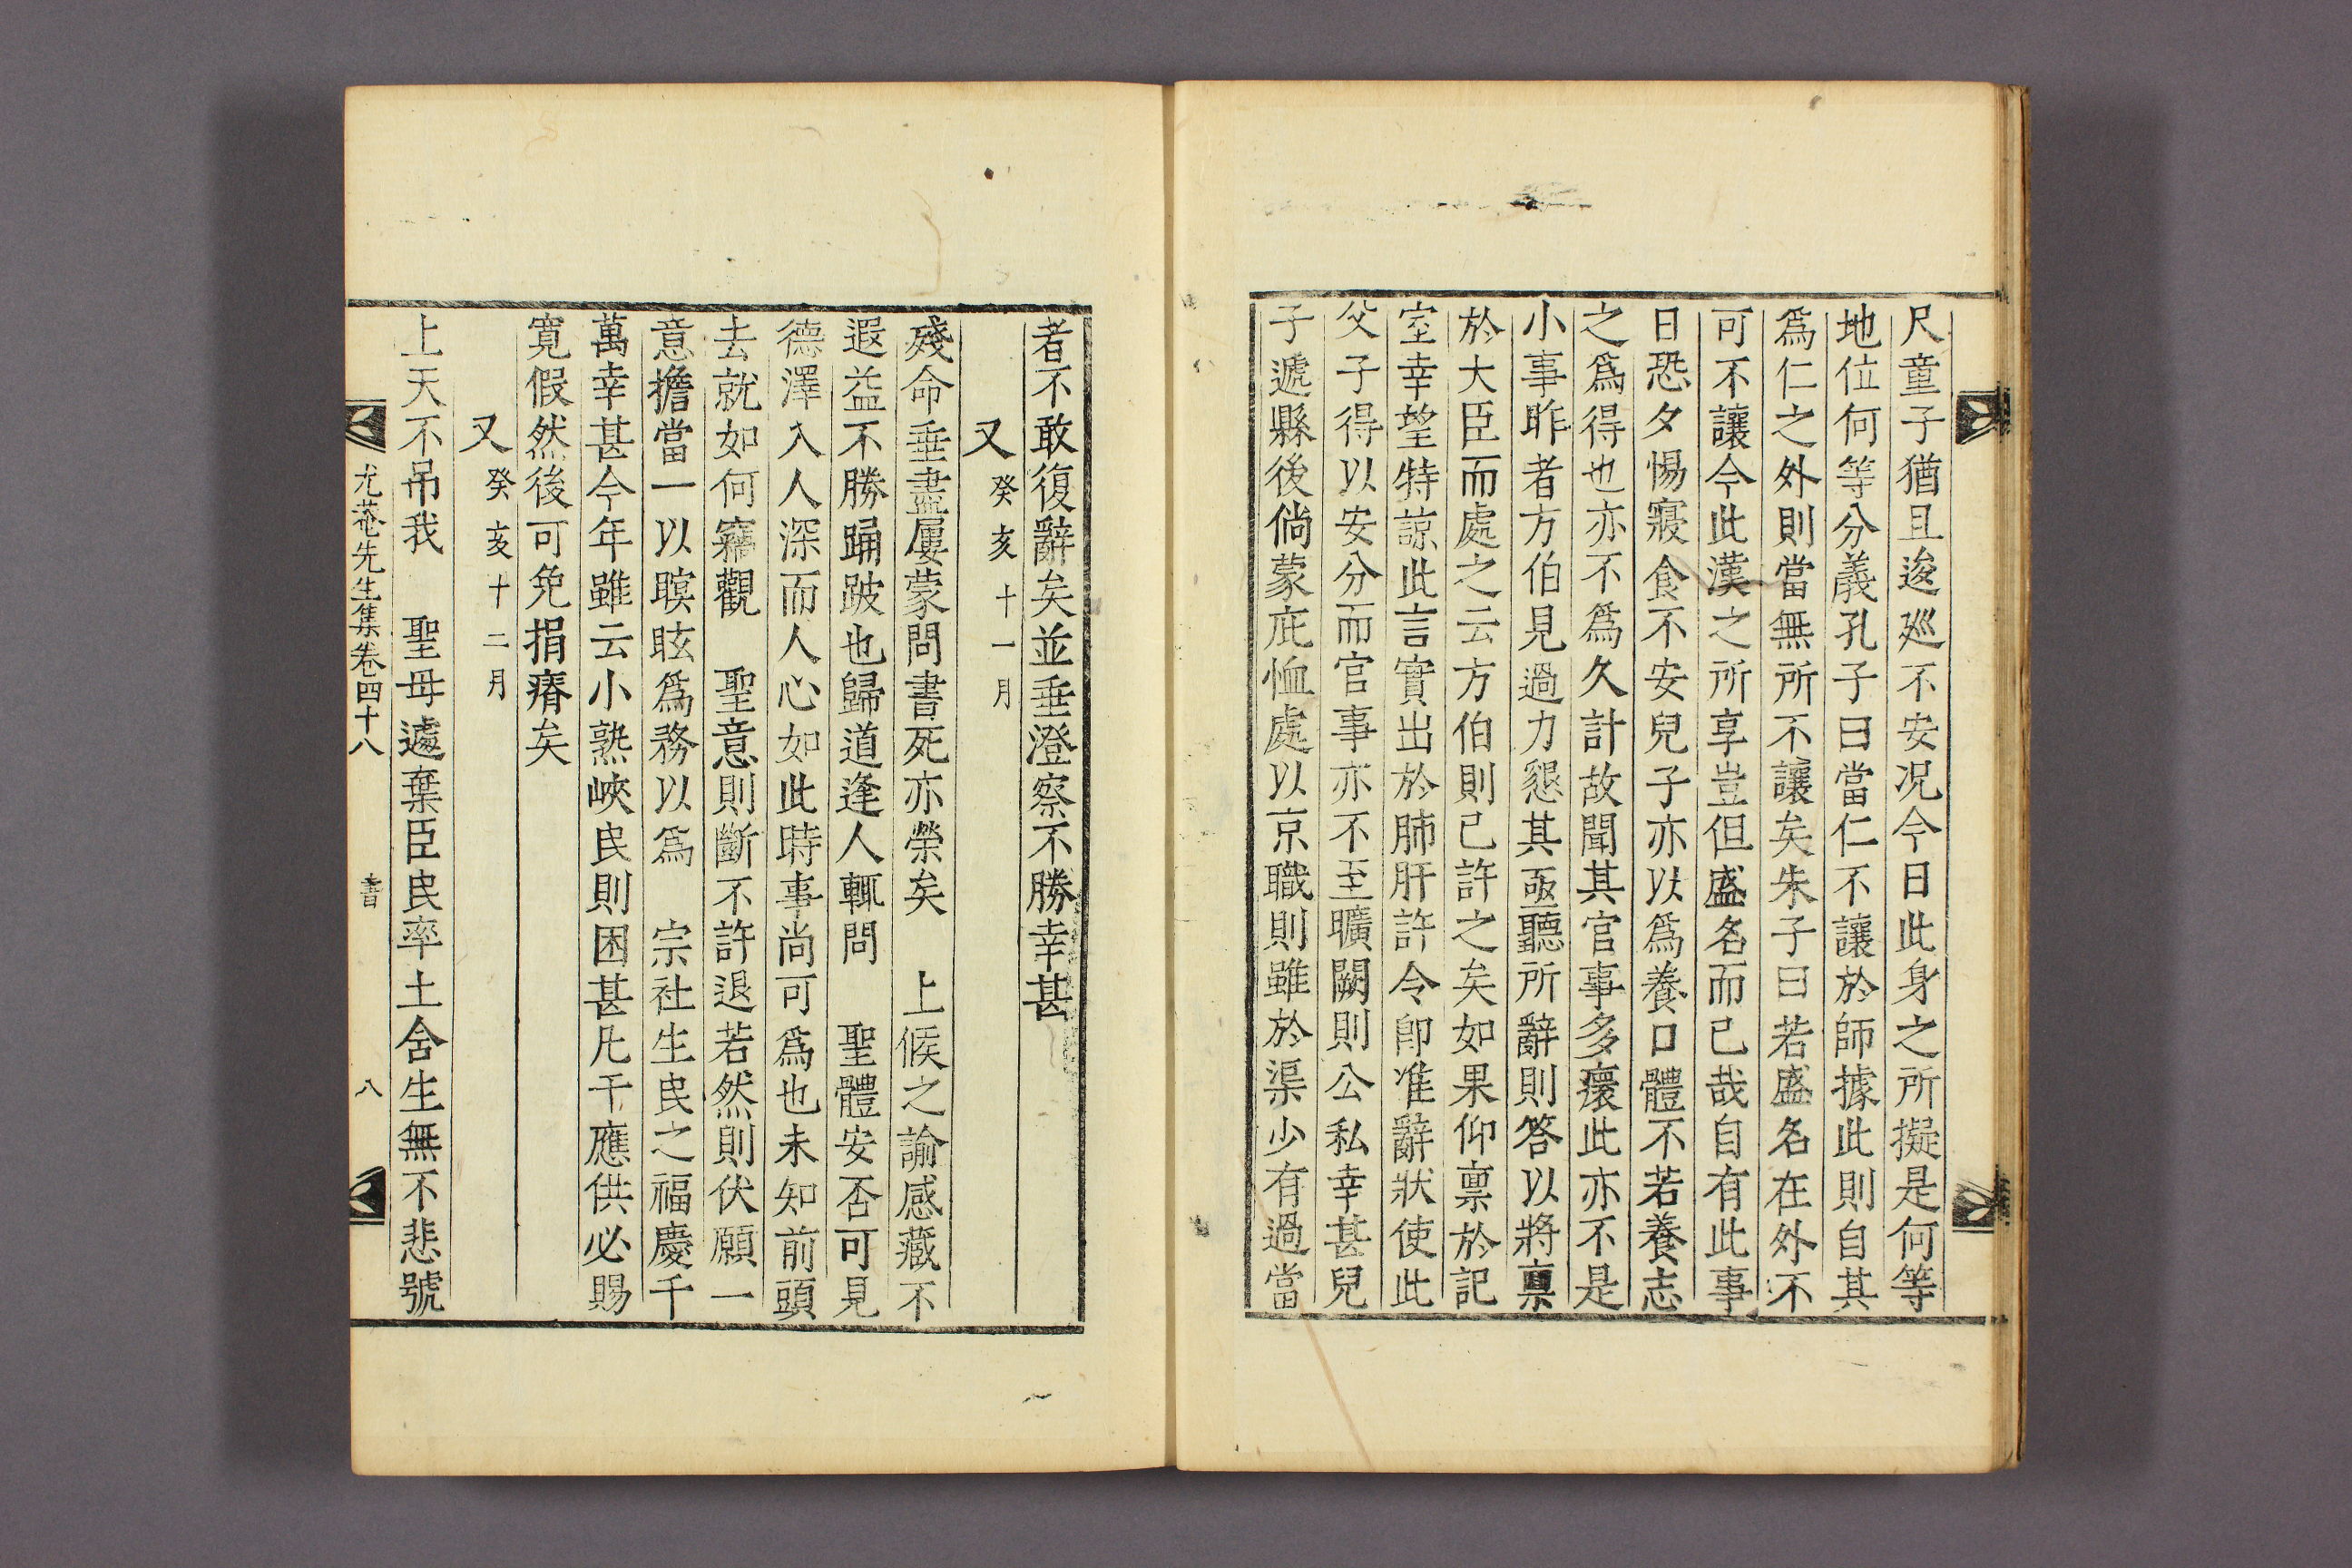 尺童子猶且逡廵不安况今日此身之所擬是何等
地位何等分義孔子曰當仁不讓於師據此則自其
爲仁之外則當無所不讓矣朱子曰若盛名在外不
可不讓今此漢之所享豈但盛名而已哉自有此事
日恐夕惕寢食不安兒子亦以爲養口體不若養志
之爲得也亦不爲久計故聞其官事多瘝此亦不是
小事昨者方伯見過力懇其亟聽所辭則答以將稟
於大臣而處之云方伯則已許之矣如果仰稟於記
室幸望特諒此言實出於肺肝許令卽准辭狀使此
父子得以安分而官事亦不至曠闕則公私幸甚兒
子遞縣後倘蒙庇恤處以京職則雖於渠少有過當
者不敢復辭矣並垂澄察不勝幸甚
又癸亥十一月
殘命垂盡屢蒙問書死亦榮矣 上候之諭感藏不
遐益不勝踊跛也歸道逢人輒問 聖體安否可見
德澤入人深而人心如此時事尚可爲也未知前頭
去就如何竊觀 聖意則斷不許退若然則伏願一
意擔當一以瞑眩爲務以爲 宗社生民之福慶千
萬幸甚今年雖云小熟峽民則困甚凡干應供必賜
寬假然後可免捐瘠矣
又癸亥十二月
上天不吊我 聖母遽棄臣民率土含生無不悲號
尤菴先生集卷四十八 書 八